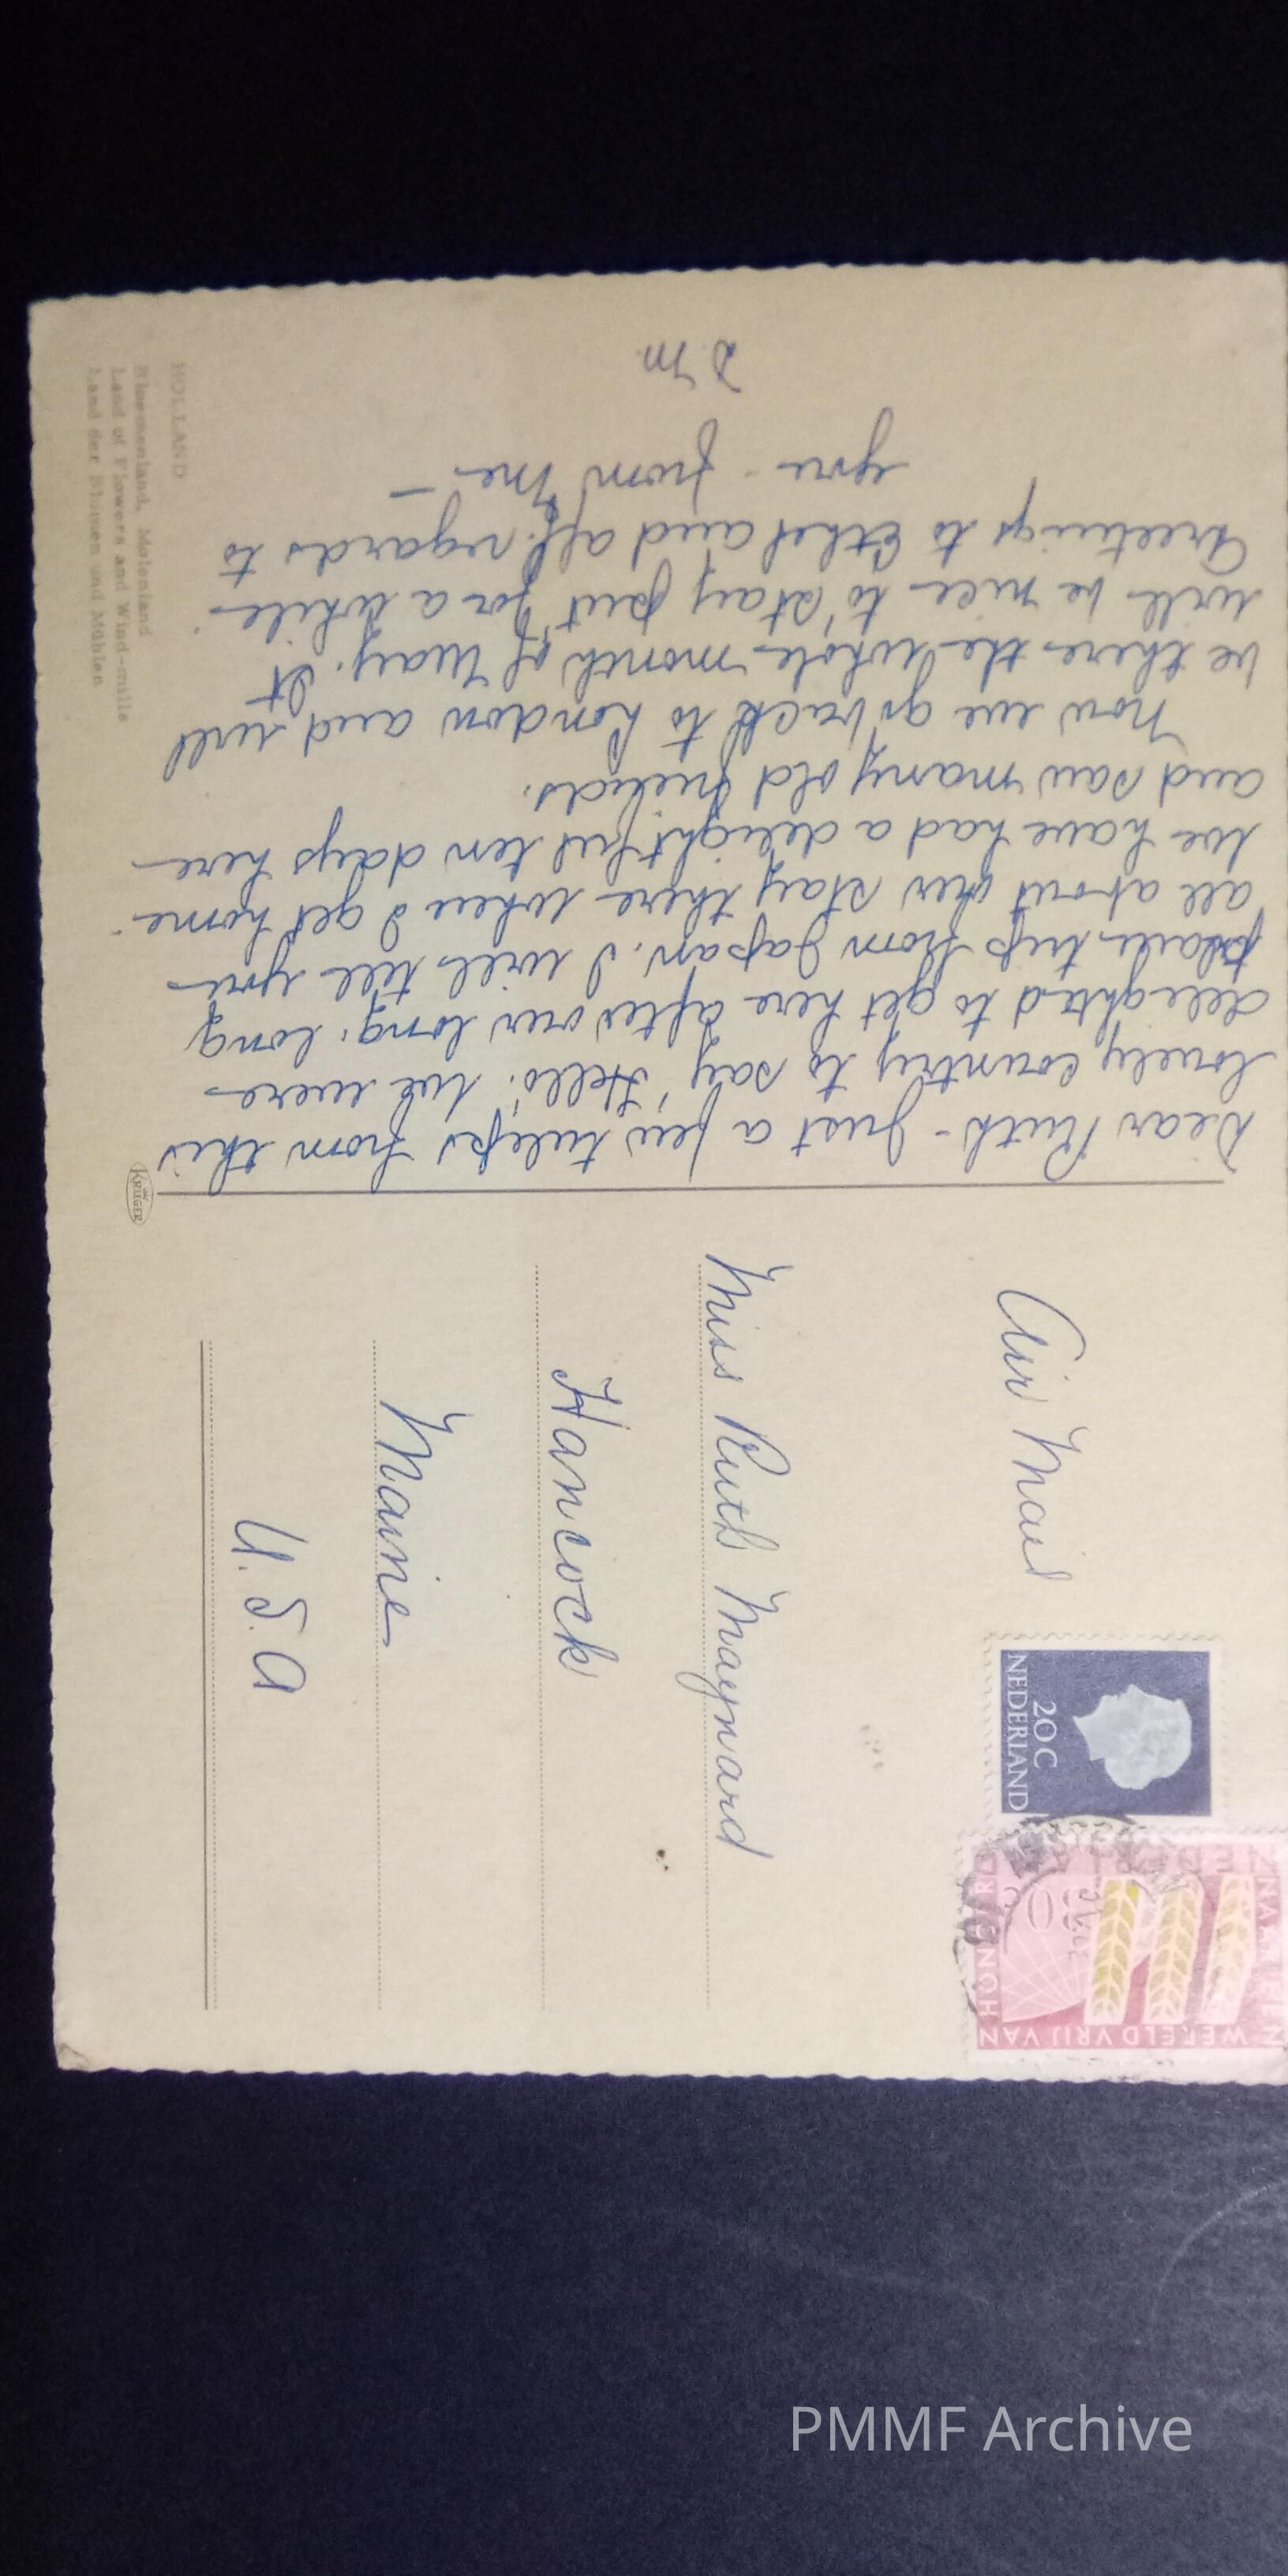 HOLLAND
Bloemenland, Molenland
Land of Flowers and Wind-mills
Land der Blumen und Mühlen
Dear Ruth - Just a few tulips from this
lovely country to say "Hello". We were
delighted to get here after our long, long
plane trip from Japan. I will tell you
all about our stay there when I get home.
We have had a delightful ten days here
and saw many old friends.
Now we go back to London and will
be there the whole month of May. It
will be nice to "stay put" for a while.
Greetings to Ethel and aff. regards to
you - from me -
D M
KRÜGER
Air Mail
Miss Ruth Maynard
Hancock
Maine
U.S.A
20C
NEDERLAND
NEDERLAND
30
WERELD VRIJ VAN
HONGER
PMMF Archive